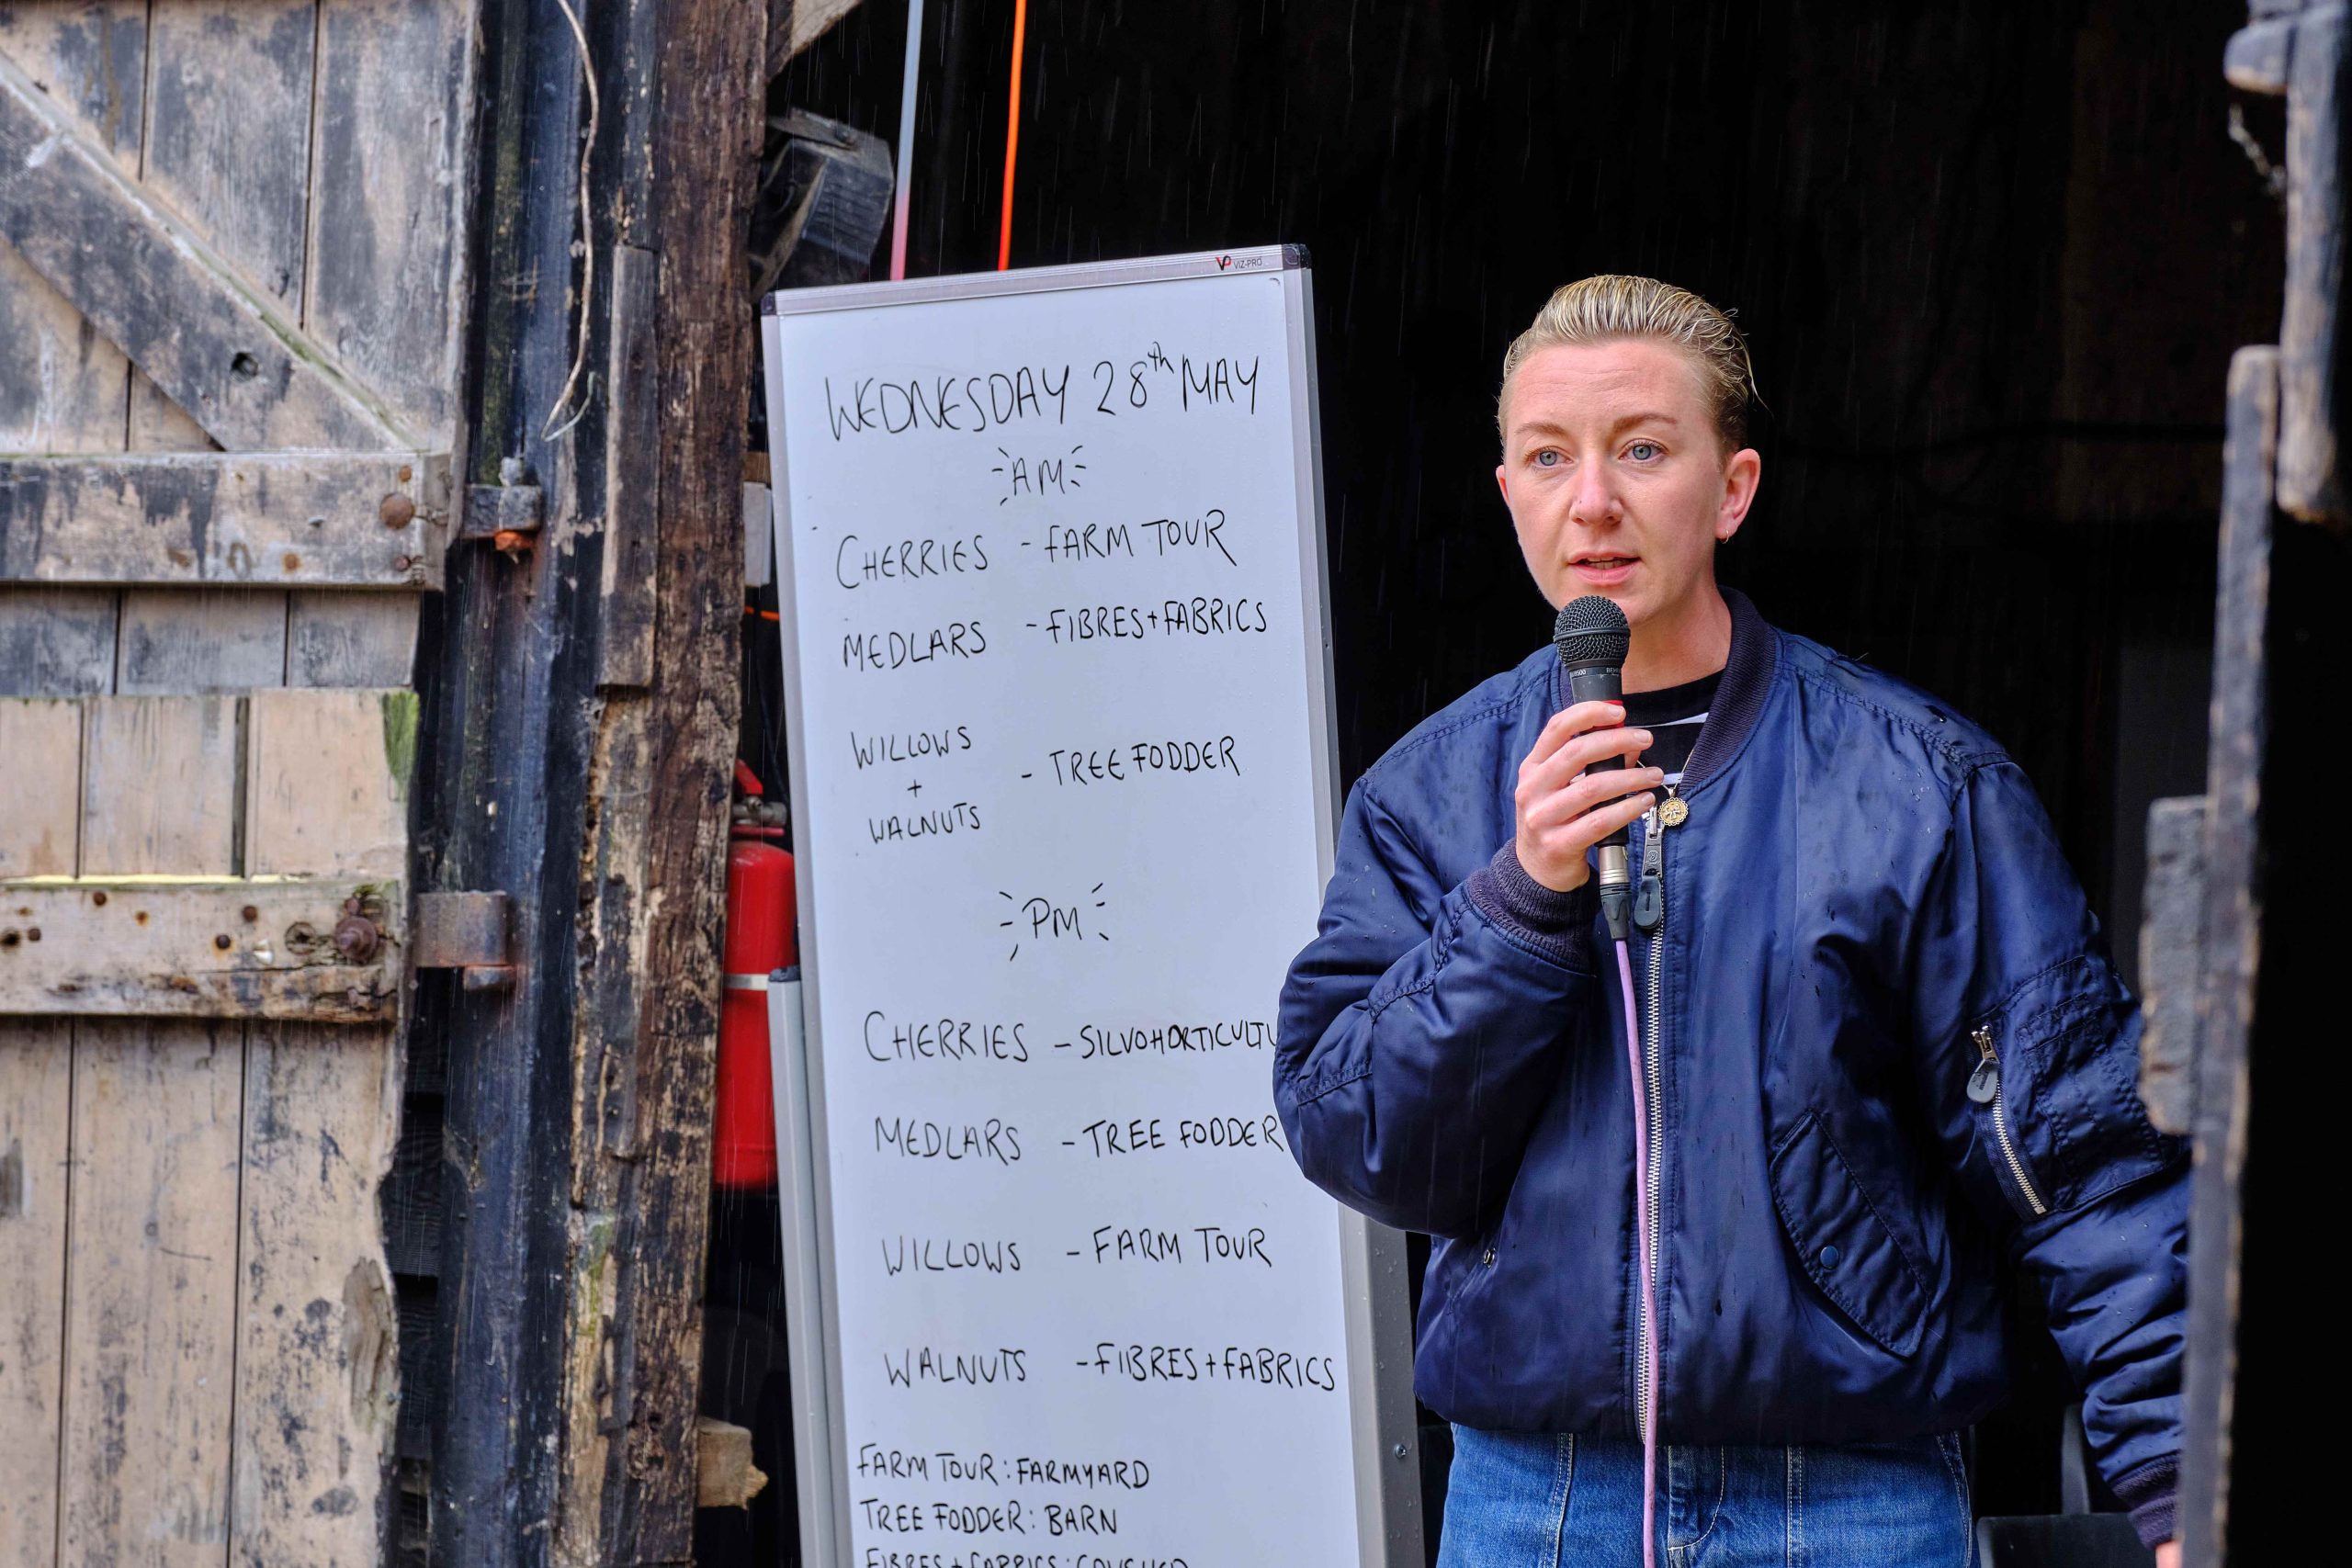 VIZ-PRO
WEDNESDAY 28th MAY
AM
CHERRIES - FARM TOUR
MEDLARS - FIBRES + FABRICS
WILLOWS
+
WALNUTS - TREE FODDER
PM
CHERRIES - SILVOHORTICULTU
MEDLARS - TREE FODDER
WILLOWS - FARM TOUR
WALNUTS - FIBRES + FABRICS
FARM TOUR: FARMYARD
TREE FODDER: BARN
FIBRES + FABRICS: